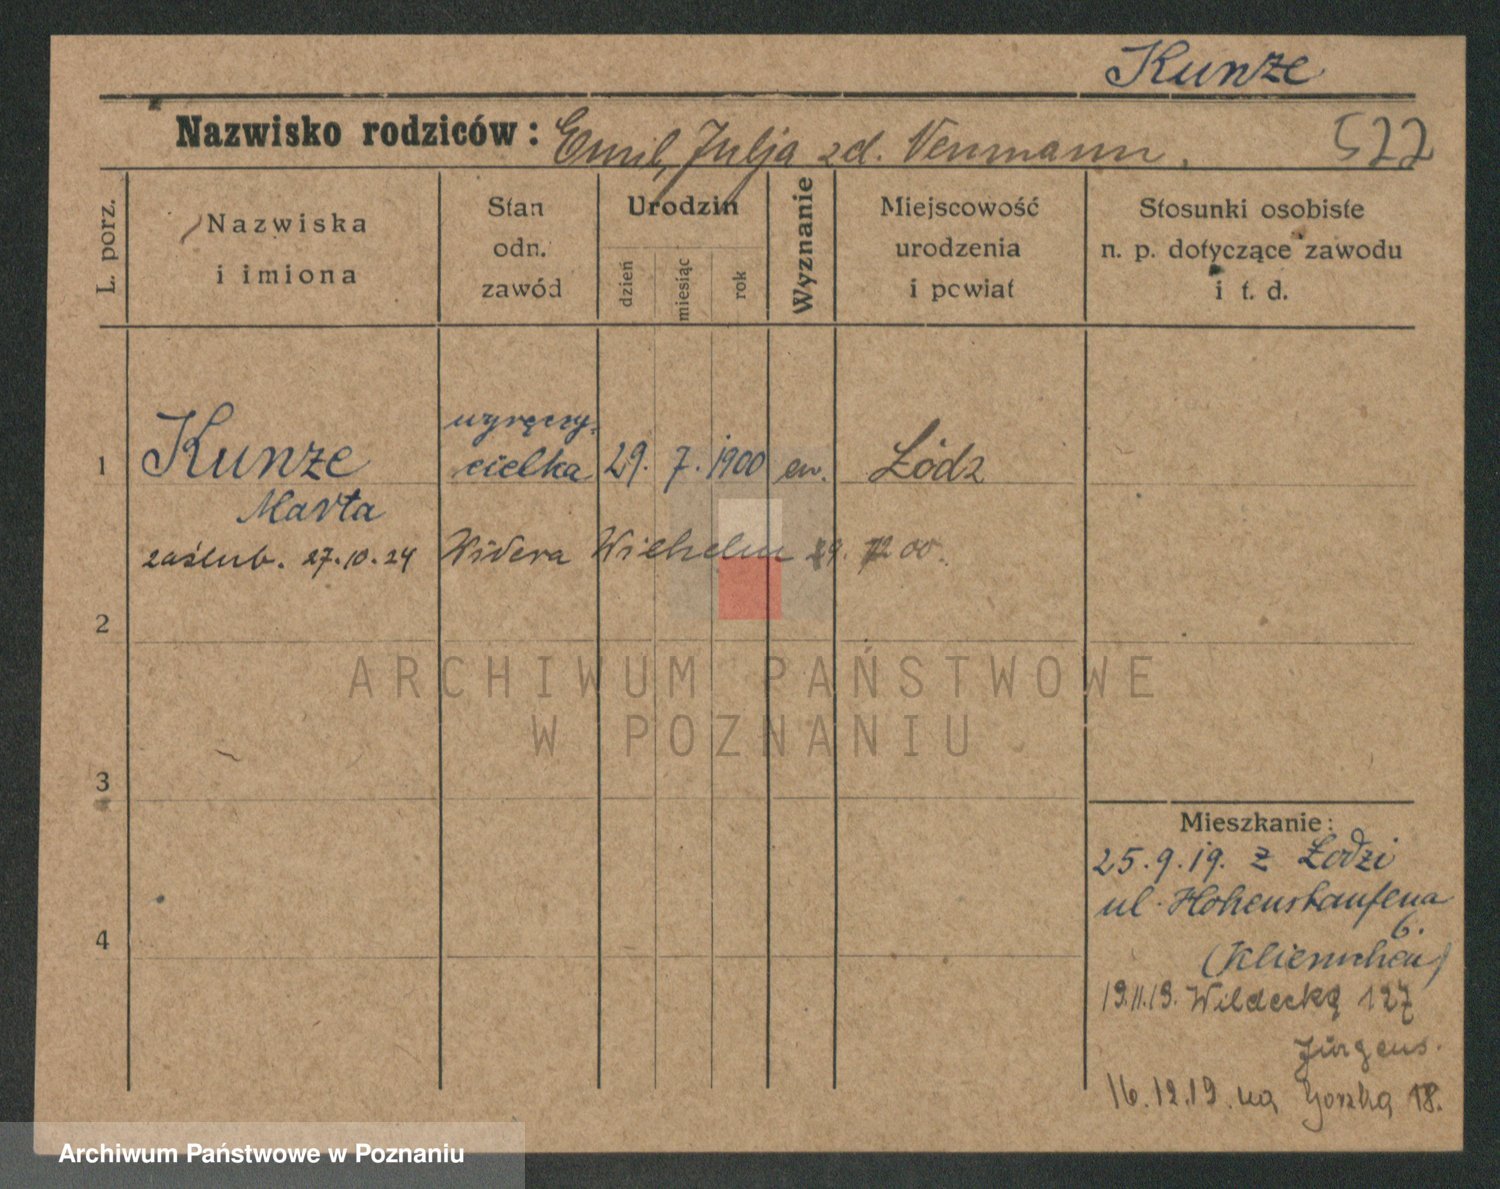 Kunze
Nazwisko rodziców: Emil, Julja zd. Neumann.
522
L. porz.
Nazwiska
i imiona
Stan
odn.
zawód
Urodzin
dzień
miesiąc
rok
Wyznanie
Miejscowość
urodzenia
i powiat
Stosunki osobiste
n. p. dotyczące zawodu
i t. d.
1
Kunze
Marta
wyręczy-
cielka
29. 7. 1900
ew.
Łódz
zaślub. 27.10.24 Widera Wilhelm
2
3
4
ARCHIWUM PAŃSTWOWE
W POZNANIU
Mieszkanie:
25.9.19. z Łodzi
ul. Hohenstaufena
6.
19.11.19. Wildecką 127
Jürgens.
16.12.19. na 18.
Archiwum Państwowe w Poznaniu